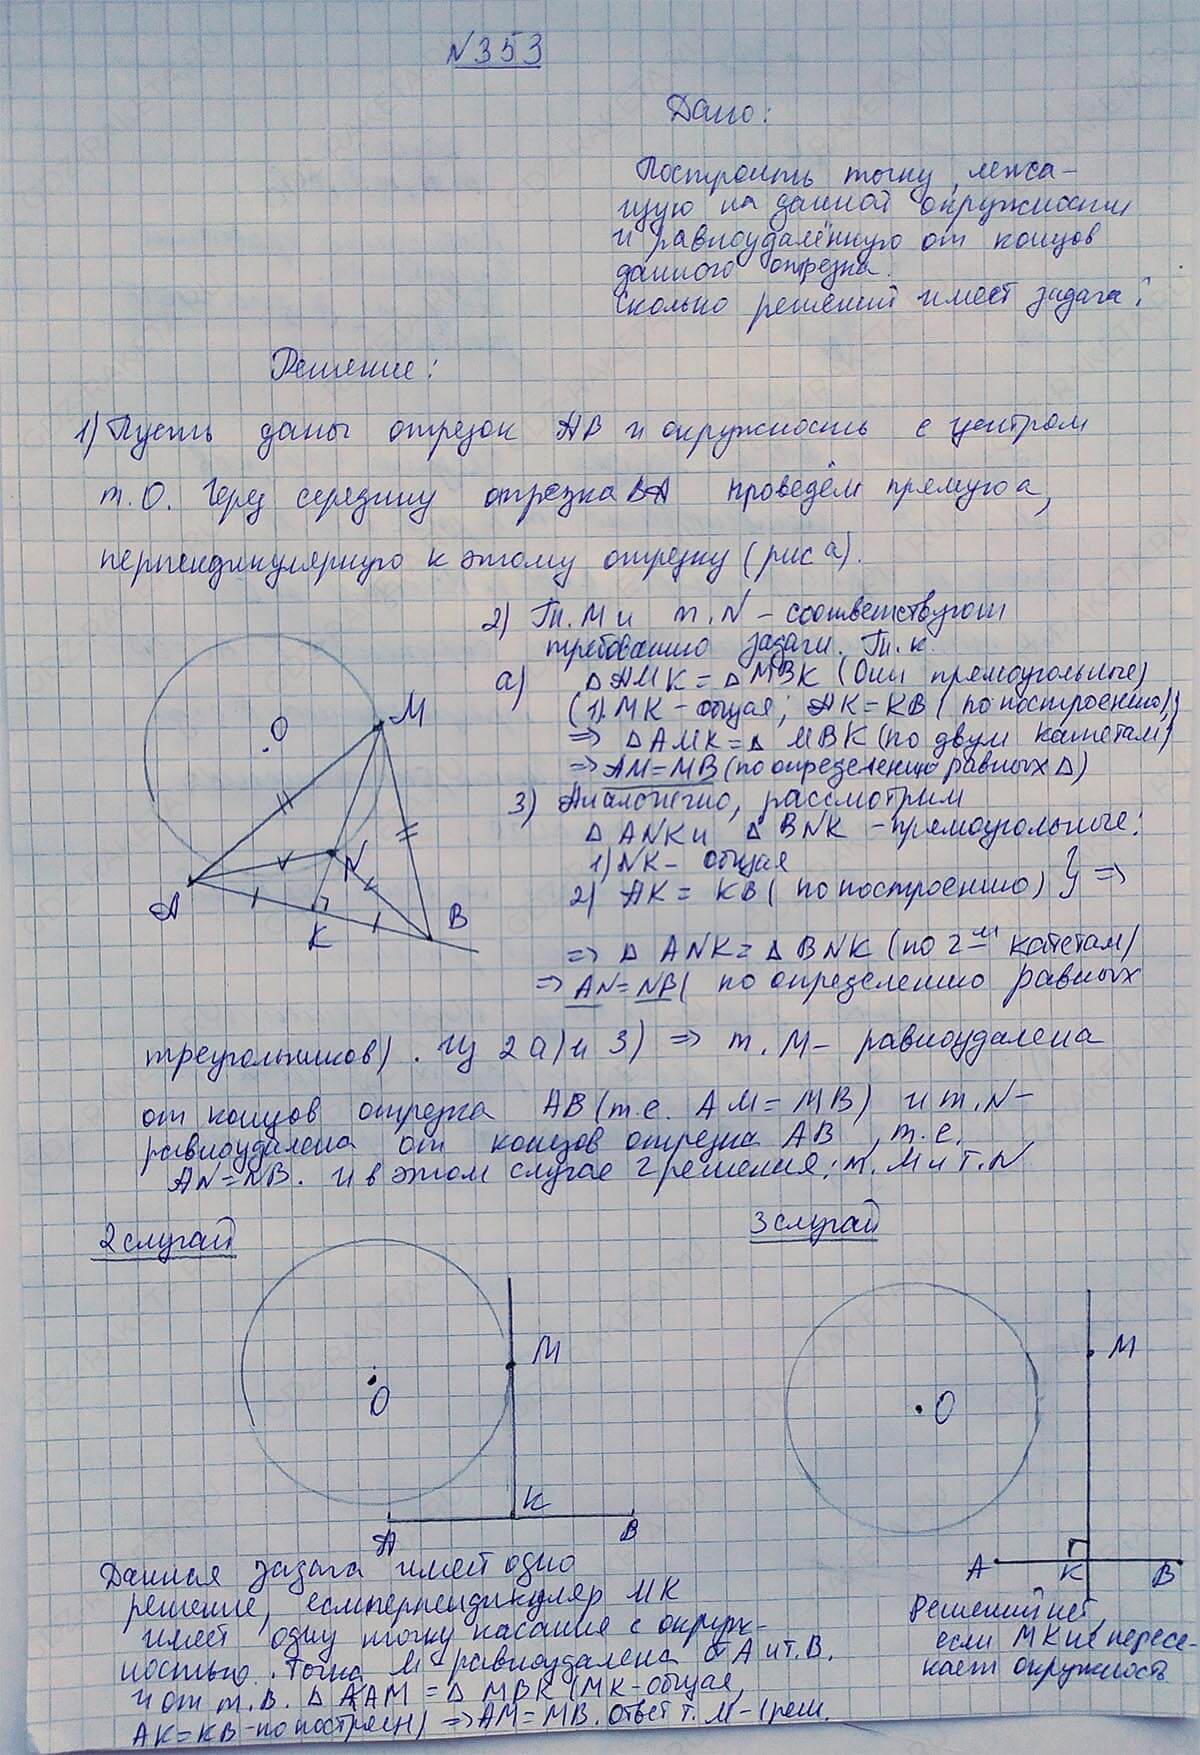 N353
Дано:
Построить точку, лежа-
щую на данной окружности
и равноудалённую от концов
данного отрезка.
Сколько решений имеет задача?
Решение:
1) Пусть даны отрезок АВ и окружность с центром
т.О. Через середину отрезка ВА проведём прямую а,
перпендикулярную к этому отрезку (рис а).
2) Т.М и т.N - соответствуют
требованию задачи. Т.к.
а) △АМК = △МВК (Они прямоугольные)
(1). МК - общая; АК = КВ (по построению)}
⇒ △АМК = △ МВК (по двум катетам)
⇒ АМ = МВ (по определению равных △)
3) Аналогично, рассмотрим
△ ANK и △ BNK - прямоугольные:
1) NK - общая
2) АК = КВ (по построению) } ⇒
⇒ △ ANK = △ BNK (по 2-м катетам)
⇒ AN = NB ( по определению равных
О
М
N
А
К
В
треугольников). Из 2а) и 3) ⇒ т. М - равноудалена
от концов отрезка АВ (т.е. АМ = МВ) и т.N -
равноудалена от концов отрезка АВ, т.е.
AN = NB. и в этом случае 2 решения: т. М и т. N
2 случай
3 случай
М
О
К
А
В
М
О
А
К
В
Данная задача имеет одно
решение, если перпендикуляр МК
имеет одну точку касания с окруж-
ностью. Точка М - равноудалена от А и т.В.
и от т.В. △ АAМ = △ МВК (МК - общая,
АК = КВ - по построен) ⇒ АМ = МВ. Ответ т. М - 1 реш.
Решений нет,
если МК не пересе-
кает окружность